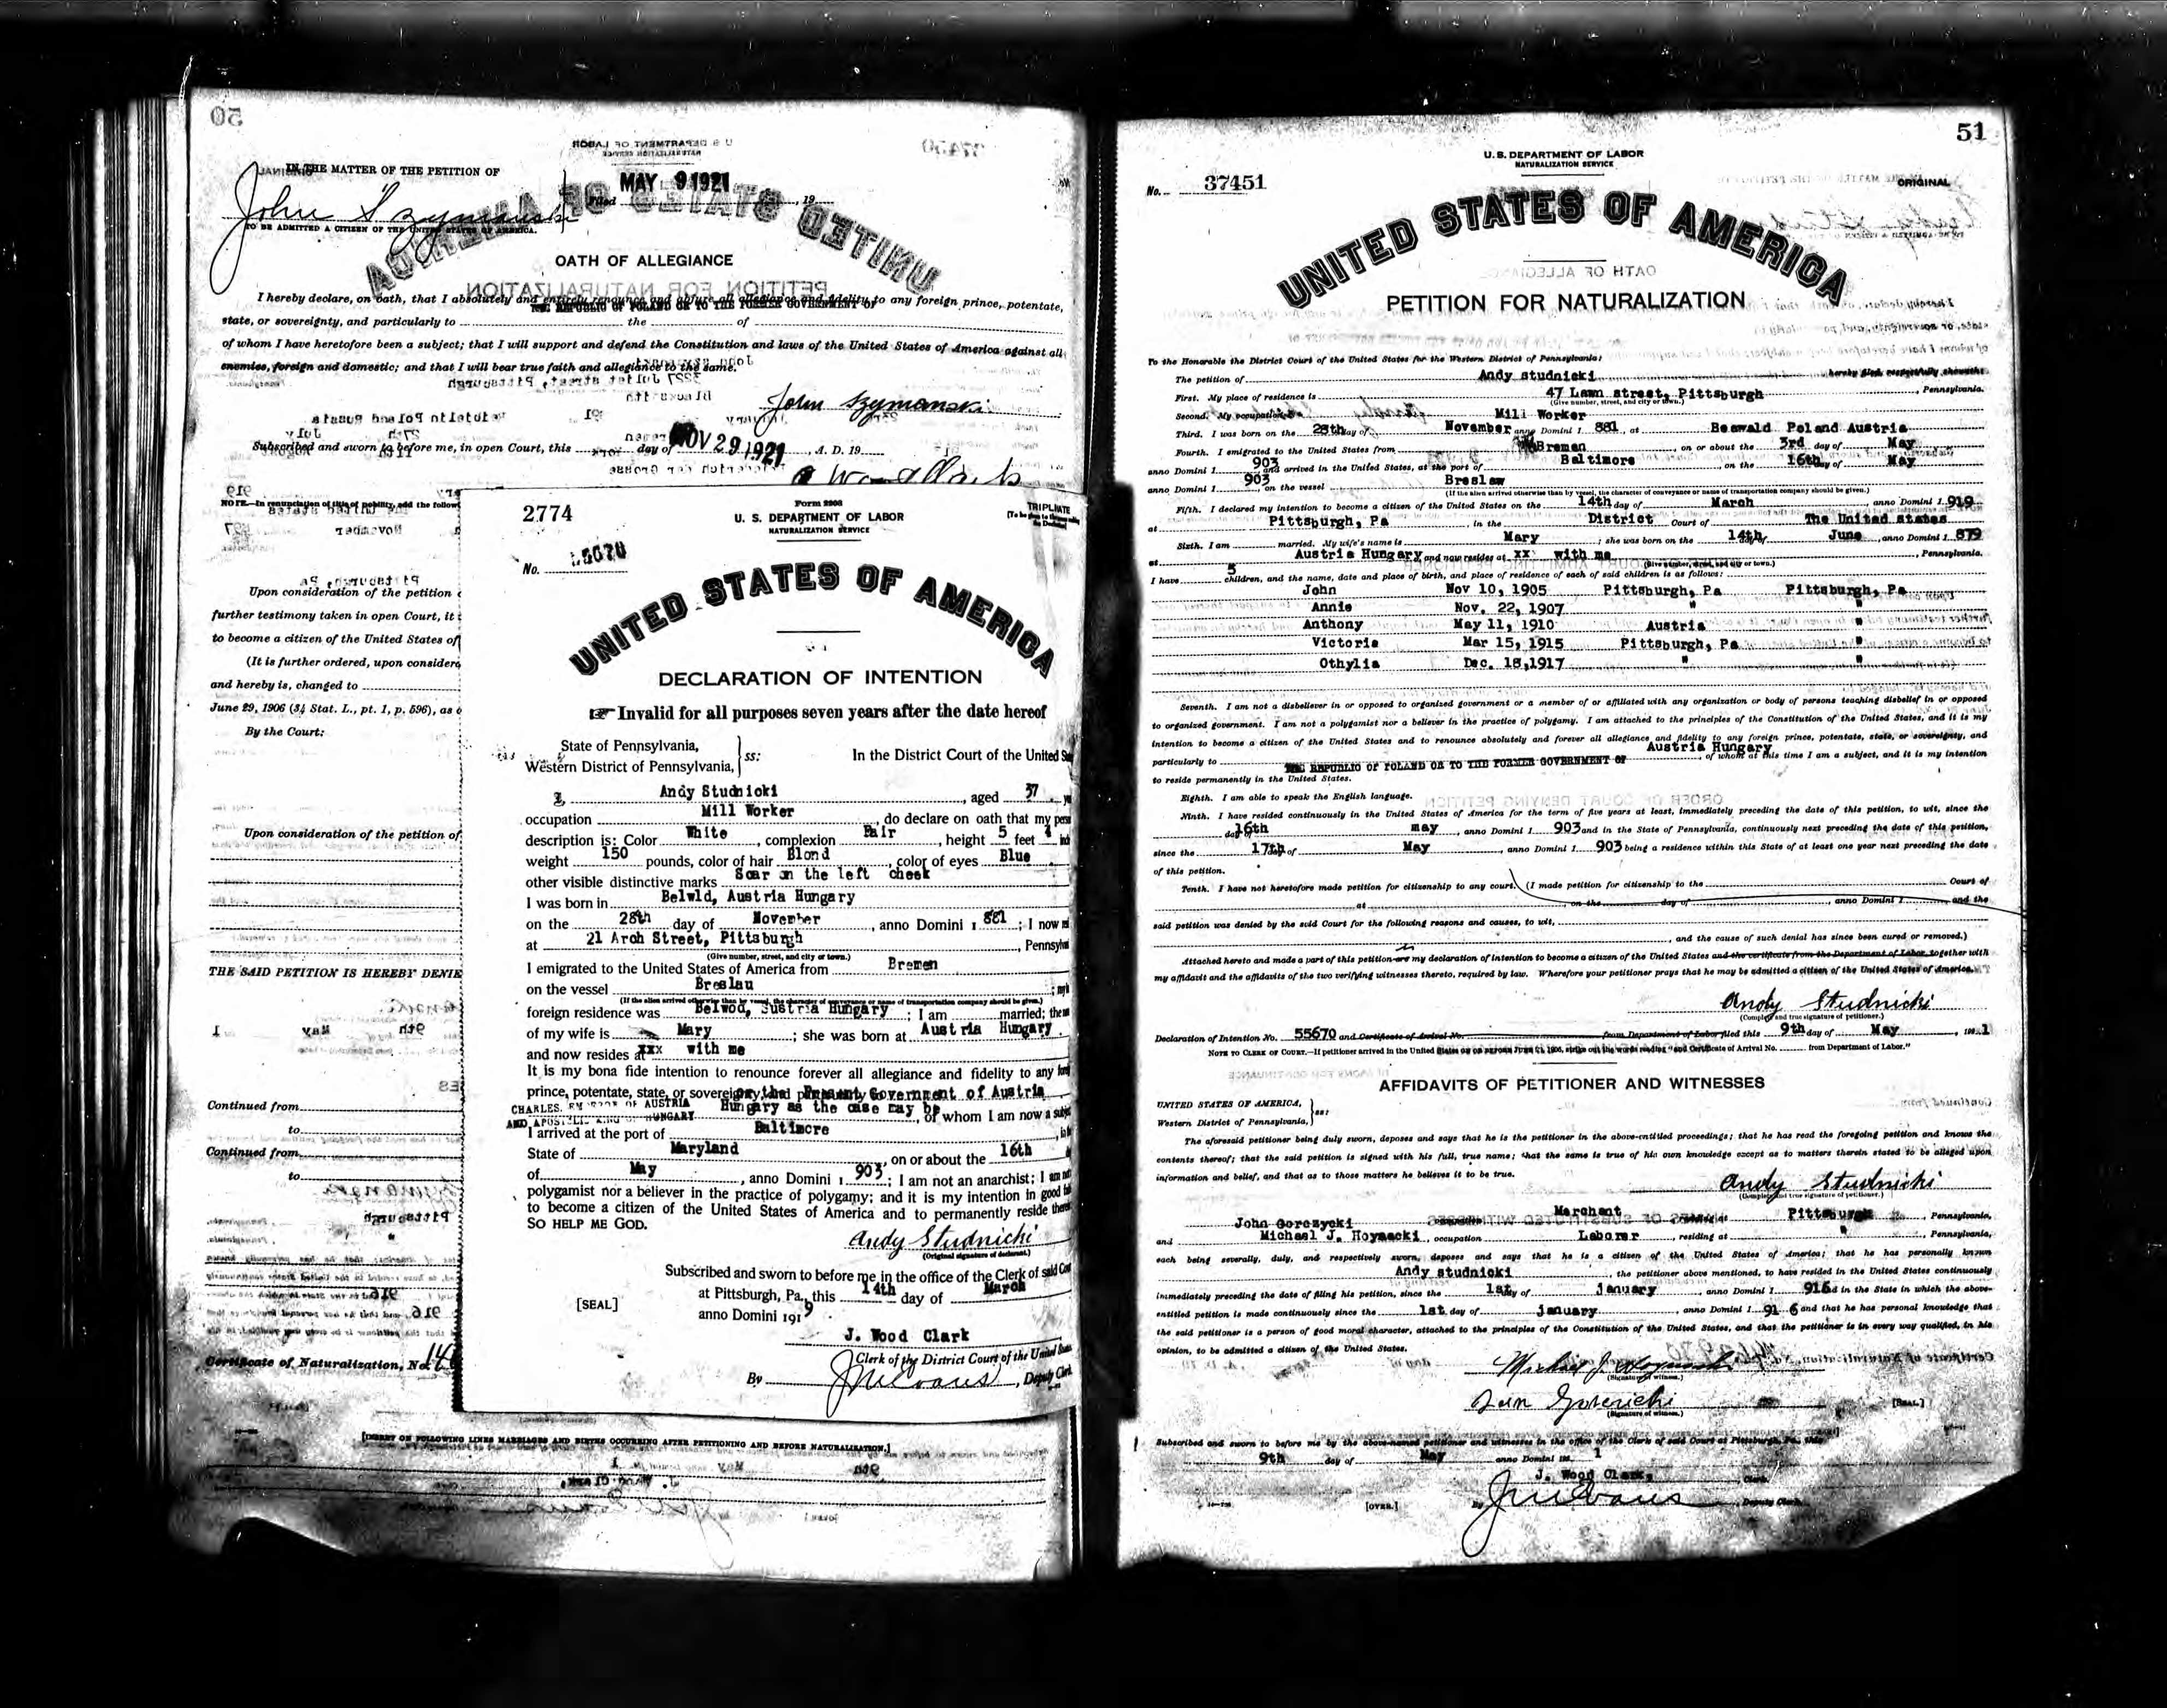 50
IN THE MATTER OF THE PETITION OF
John Szymanski
TO BE ADMITTED A CITIZEN OF THE UNITED STATES OF AMERICA.
Filed MAY 9 1921, 19
OATH OF ALLEGIANCE
I hereby declare, on oath, that I absolutely and entirely renounce and abjure all allegiance and fidelity to any foreign prince, potentate,
THE REPUBLIC OF POLAND OR TO THE FORMER GOVERNMENT OF
state, or sovereignty, and particularly to the of
of whom I have heretofore been a subject; that I will support and defend the Constitution and laws of the United States of America against all
enemies, foreign and domestic; and that I will bear true faith and allegiance to the same.
John Szymanski
Subscribed and sworn to before me, in open Court, this day of NOV 29 1921, A. D. 19
NOTE.—In renunciation of title of nobility, add the follow
Upon consideration of the petition
further testimony taken in open Court, it
to become a citizen of the United States of
(It is further ordered, upon considera
and hereby is, changed to
June 29, 1906 (34 Stat. L., pt. 1, p. 596), as
By the Court:
Upon consideration of the petition of
THE SAID PETITION IS HEREBY DENIE
Continued from
to
Continued from
to
Certificate of Naturalization, No. 14
[INSERT ON FOLLOWING LINES MARRIAGES AND BIRTHS OCCURRING AFTER PETITIONING AND BEFORE NATURALIZATION.]
2774
Form 2203
U. S. DEPARTMENT OF LABOR
NATURALIZATION SERVICE
TRIPLICATE
No.
UNITED STATES OF AMERICA
DECLARATION OF INTENTION
☞ Invalid for all purposes seven years after the date hereof
State of Pennsylvania,
Western District of Pennsylvania, ss: In the District Court of the United
I, Andy Studnicki, aged 37
occupation Mill Worker, do declare on oath that my
description is: Color White, complexion Fair, height 5 feet 4
weight 150 pounds, color of hair Blond, color of eyes Blue
other visible distinctive marks Scar on the left cheek
I was born in Belwld, Austria Hungary
on the 28th day of November, anno Domini 1 881; I now
at 21 Arch Street, Pittsburgh, Pennsylva
(Give number, street, and city or town.)
I emigrated to the United States of America from Bremen
on the vessel Breslau; my
(If the alien arrived otherwise than by vessel, the character of conveyance or name of transportation company should be given.)
foreign residence was Belwod, Austria Hungary; I am married; the
of my wife is Mary; she was born at Austria Hungary
and now resides at xxx with me
It is my bona fide intention to renounce forever all allegiance and fidelity to any
prince, potentate, state, or sovereignty, and particularly or the Present Government of Austria
CHARLES, EMPEROR OF AUSTRIA
AND APOSTOLIC KING OF HUNGARY Hungary as the case may be, of whom I am now a
I arrived at the port of Baltimore
State of Maryland, on or about the 16th
of May, anno Domini 1 903; I am not an anarchist; I am
polygamist nor a believer in the practice of polygamy; and it is my intention in good
to become a citizen of the United States of America and to permanently reside
SO HELP ME GOD.
Andy Studnicki
(Original signature of declarant.)
Subscribed and sworn to before me in the office of the Clerk of said
[SEAL] at Pittsburgh, Pa., this 14th day of March
anno Domini 1919.
J. Wood Clark
Clerk of the District Court of the United
By J M Evans, Deputy Clerk
51
U. S. DEPARTMENT OF LABOR
NATURALIZATION SERVICE
No. 37451 ORIGINAL
UNITED STATES OF AMERICA
PETITION FOR NATURALIZATION
To the Honorable the District Court of the United States for the Western District of Pennsylvania:
The petition of Andy studnicki hereby filed, respectfully showeth:
First. My place of residence is 47 Lawn street, Pittsburgh, Pennsylvania.
(Give number, street, and city or town.)
Second. My occupation is Mill Worker
Third. I was born on the 28th day of November anno Domini 1 881, at Beawald Poland Austria
Fourth. I emigrated to the United States from Breman, on or about the 3rd day of May
anno Domini 1 903, and arrived in the United States, at the port of Baltimore, on the 16th day of May
anno Domini 1 903, on the vessel Breslaw
(If the alien arrived otherwise than by vessel, the character of conveyance or name of transportation company should be given.)
Fifth. I declared my intention to become a citizen of the United States on the 14th day of March, anno Domini 1 919
at Pittsburgh, Pa, in the District Court of The United states
Sixth. I am married. My wife's name is Mary; she was born on the 14th day of June, anno Domini 1 879
at Austria Hungary and now resides at xx with me, Pennsylvania.
(Give number, street, and city or town.)
I have 5 children, and the name, date and place of birth, and place of residence of each of said children is as follows:
John Nov 10, 1905 Pittsburgh, Pa Pittsburgh, Pa
Annie Nov. 22, 1907 " "
Anthony May 11, 1910 Austria "
Victoria Mar 15, 1915 Pittsburgh, Pa "
Othylia Dec. 18,1917 " "
Seventh. I am not a disbeliever in or opposed to organized government or a member of or affiliated with any organization or body of persons teaching disbelief in or opposed
to organized government. I am not a polygamist nor a believer in the practice of polygamy. I am attached to the principles of the Constitution of the United States, and it is my
intention to become a citizen of the United States and to renounce absolutely and forever all allegiance and fidelity to any foreign prince, potentate, state, or sovereignty, and
particularly to THE REPUBLIC OF POLAND OR TO THE FORMER GOVERNMENT OF Austria Hungary, of whom at this time I am a subject, and it is my intention
to reside permanently in the United States.
Eighth. I am able to speak the English language.
Ninth. I have resided continuously in the United States of America for the term of five years at least, immediately preceding the date of this petition, to wit, since the
16th day of may, anno Domini 1 903 and in the State of Pennsylvania, continuously next preceding the date of this petition,
since the 17th day of May, anno Domini 1 903 being a residence within this State of at least one year next preceding the date
of this petition.
Tenth. I have not heretofore made petition for citizenship to any court. (I made petition for citizenship to the Court of
at, on the day of, anno Domini 1 and the
said petition was denied by the said Court for the following reasons and causes, to wit,
, and the cause of such denial has since been cured or removed.)
Attached hereto and made a part of this petition are my declaration of intention to become a citizen of the United States and the certificate from the Department of Labor, together with
my affidavit and the affidavits of the two verifying witnesses thereto, required by law. Wherefore your petitioner prays that he may be admitted a citizen of the United States of America.
Andy Studnicki
(Complete and true signature of petitioner.)
Declaration of Intention No. 55670 and Certificate of Arrival No. from Department of Labor filed this 9th day of May, 192 1
NOTE TO CLERK OF COURT.—If petitioner arrived in the United States ON OR BEFORE JUNE 29, 1906, strike out the words reading "and Certificate of Arrival No. from Department of Labor."
AFFIDAVITS OF PETITIONER AND WITNESSES
UNITED STATES OF AMERICA,
Western District of Pennsylvania, ss:
The aforesaid petitioner being duly sworn, deposes and says that he is the petitioner in the above-entitled proceedings; that he has read the foregoing petition and knows the
contents thereof; that the said petition is signed with his full, true name; that the same is true of his own knowledge except as to matters therein stated to be alleged upon
information and belief, and that as to those matters he believes it to be true.
Andy Studnicki
(Complete and true signature of petitioner.)
John Gorczycki Merchant Pittsburgh, Pennsylvania,
and Michael J. Hoynacki, occupation Laborer, residing at ", Pennsylvania,
each being severally, duly, and respectively sworn, deposes and says that he is a citizen of the United States of America; that he has personally known
Andy studnicki, the petitioner above mentioned, to have resided in the United States continuously
immediately preceding the date of filing his petition, since the 1st day of january, anno Domini 1 916 and in the State in which the above-
entitled petition is made continuously since the 1st day of january, anno Domini 1 91 6 and that he has personal knowledge that
the said petitioner is a person of good moral character, attached to the principles of the Constitution of the United States, and that the petitioner is in every way qualified, in his
opinion, to be admitted a citizen of the United States.
(Signature of witness.)
(Signature of witness.)
[SEAL.]
Subscribed and sworn to before me by the above-named petitioner and witnesses in the office of the Clerk of said Court at Pittsburgh, Pa., this
9th day of May anno Domini 192 1
J. Wood Clark, Clerk.
[OVER.] By J M Evans, Deputy Clerk.